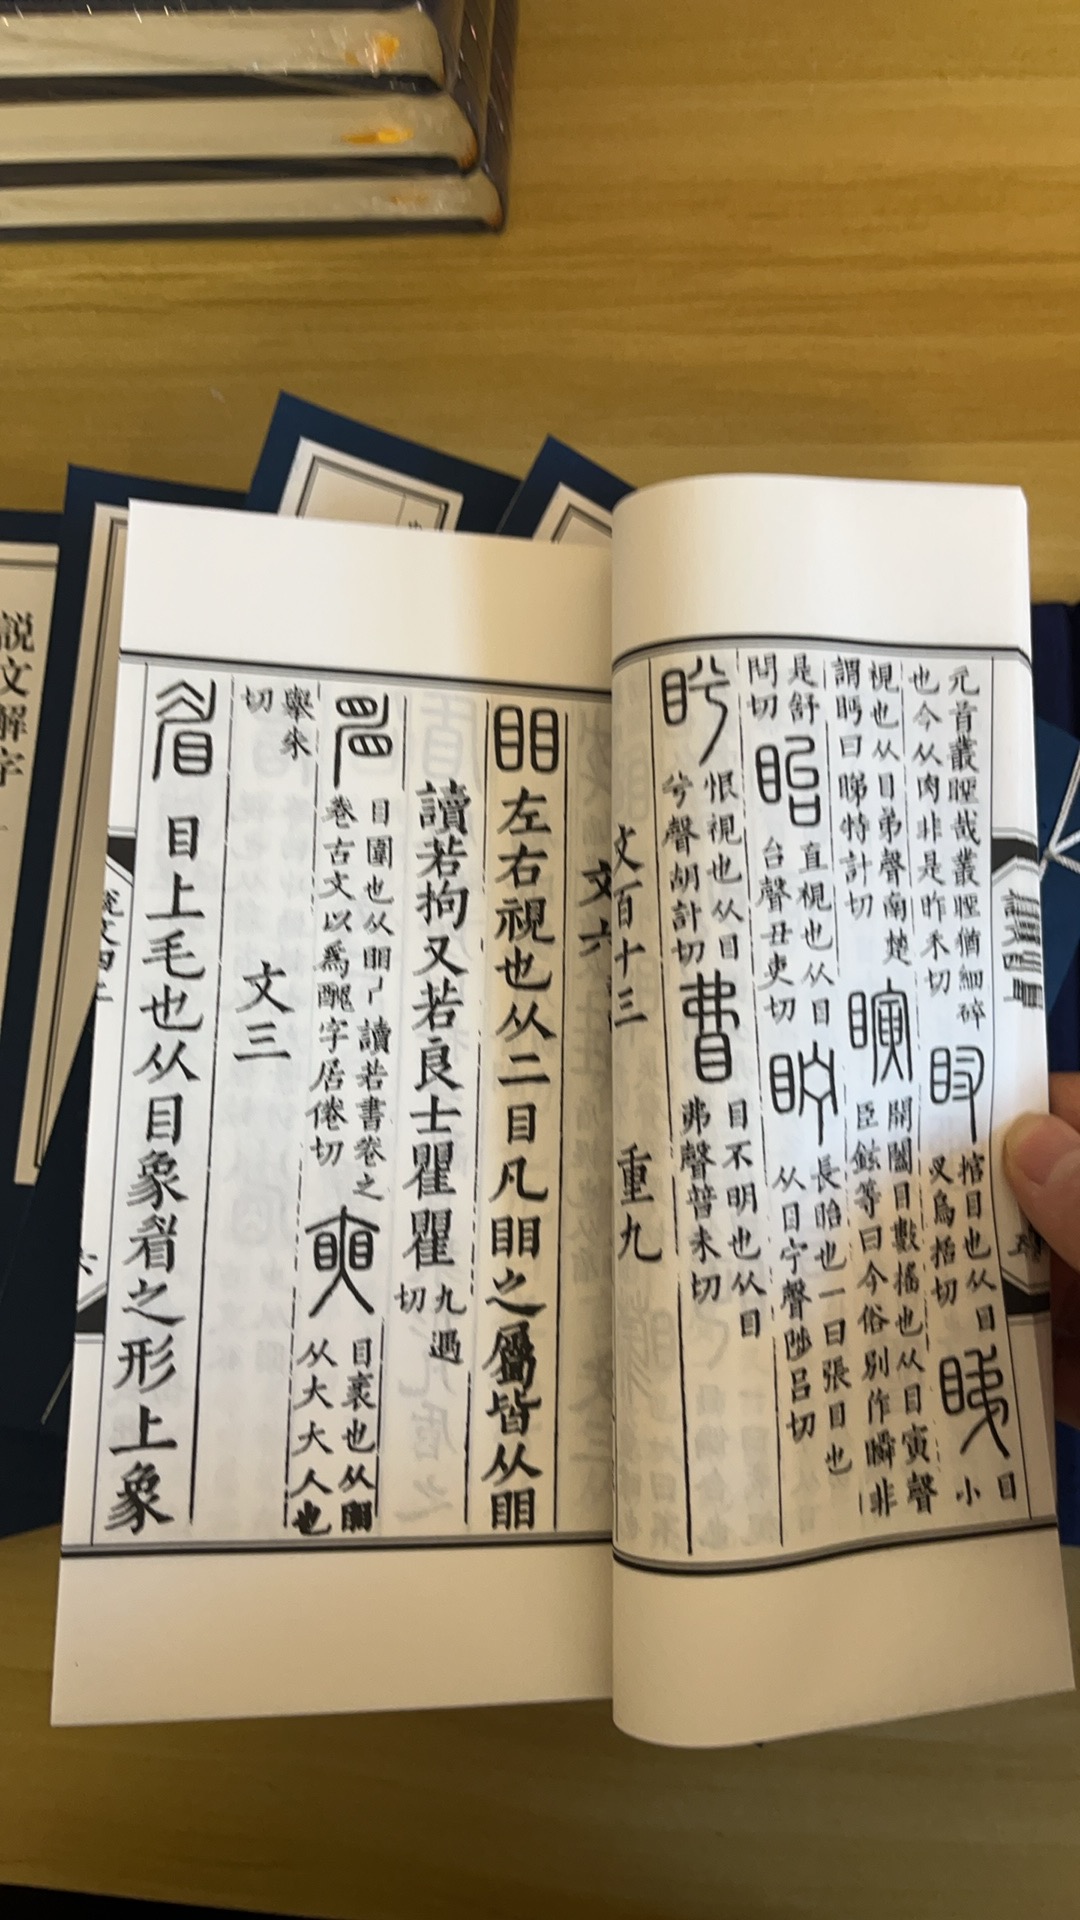 元首叢脞哉叢脞猶細碎
也今从肉非是昨禾切
䀛
捾目也从目
叉烏括切
睇
目
小
視也从目弟聲南楚
謂眄曰睇特計切
瞚
開闔目數搖也从目寅聲
臣鉉等曰今俗別作瞬非
是舒
問切
眙
直視也从目
台聲丑吏切
眝
長眙也一曰張目也
从目宁聲陟呂切
盻
恨視也从目
兮聲胡計切
䀟
目不明也从目
弗聲普未切
文百十三
重九
文六
䀠
左右視也从二目凡䀠之屬皆从䀠
讀若拘又若良士瞿瞿
九遇
切
目圍也从䀠𠂆讀若書卷之
卷古文以為醜字居倦切
目衺也从䀠
从大大人也
舉朱
切
文三
眉
目上毛也从目象眉之形上象
説文解字
説文四上